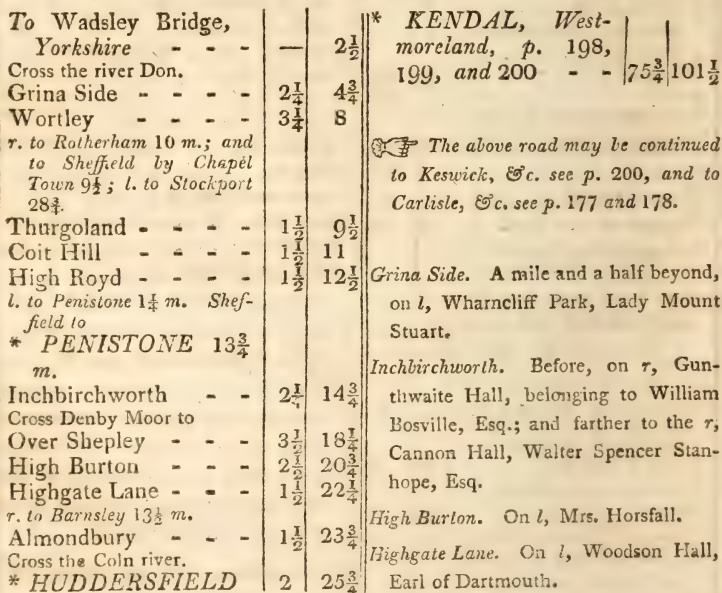 To Wadsley Bridge,
Yorkshire - - - — 2½
Cross the river Don.
Grina Side - - - - 2¼ 4¾
Wortley - - - - 3¼ 8
r. to Rotherham 10 m.; and
to Sheffield by Chapel
Town 9½; l. to Stockport
28¾.
Thurgoland - - - - 1½ 9½
Coit Hill - - - - 1½ 11
High Royd - - - - 1½ 12½
l. to Penistone 1¼ m. Shef-
field to
* PENISTONE 13¾
m.
Inchbirchworth - - 2¼ 14¾
Cross Denby Moor to
Over Shepley - - - 3½ 18¼
High Burton - - - 2½ 20¾
Highgate Lane - - - 1½ 22¼
r. to Barnsley 13½ m.
Almondbury - - - 1½ 23¾
Cross the Coln river.
* HUDDERSFIELD 2 25¾
* KENDAL, West-
moreland, p. 198,
199, and 200 - - 75¾ 101½
☞ The above road may be continued
to Keswick, &c. see p. 200, and to
Carlisle, &c. see p. 177 and 178.
Grina Side. A mile and a half beyond,
on l, Wharncliff Park, Lady Mount
Stuart.
Inchbirchworth. Before, on r, Gun-
thwaite Hall, belonging to William
Bosville, Esq.; and farther to the r,
Cannon Hall, Walter Spencer Stan-
hope, Esq.
High Burton. On l, Mrs. Horsfall.
Highgate Lane. On l, Woodson Hall,
Earl of Dartmouth.